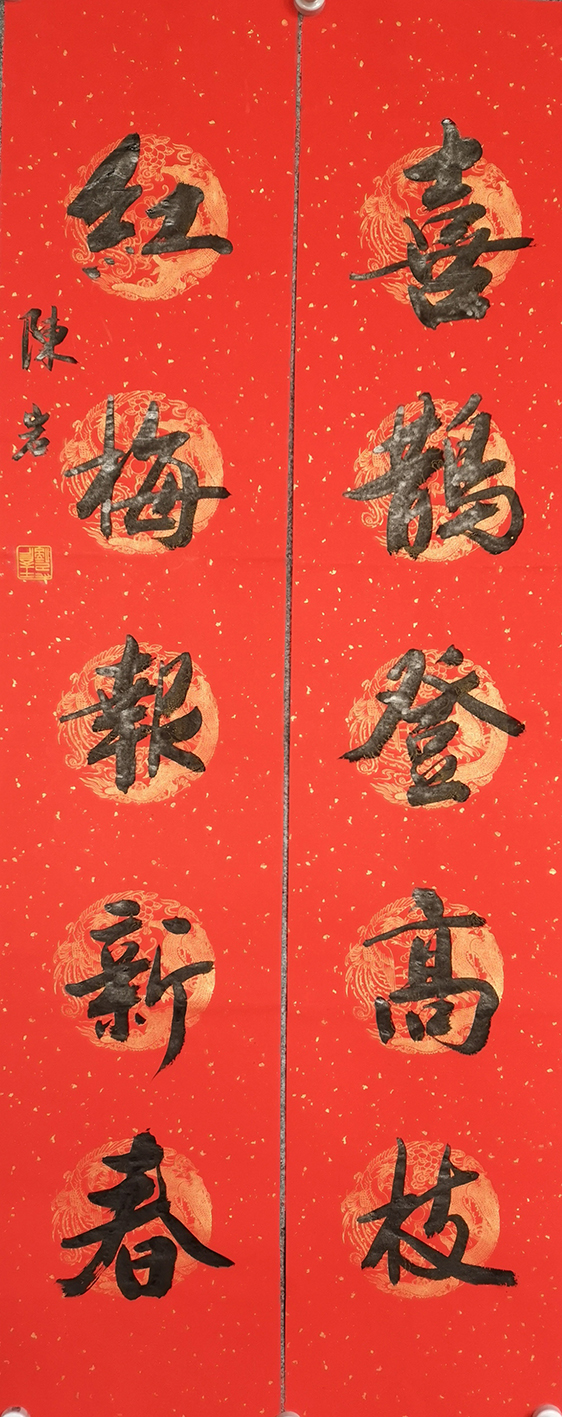 喜鵲登高枝
紅梅報新春
陳岩